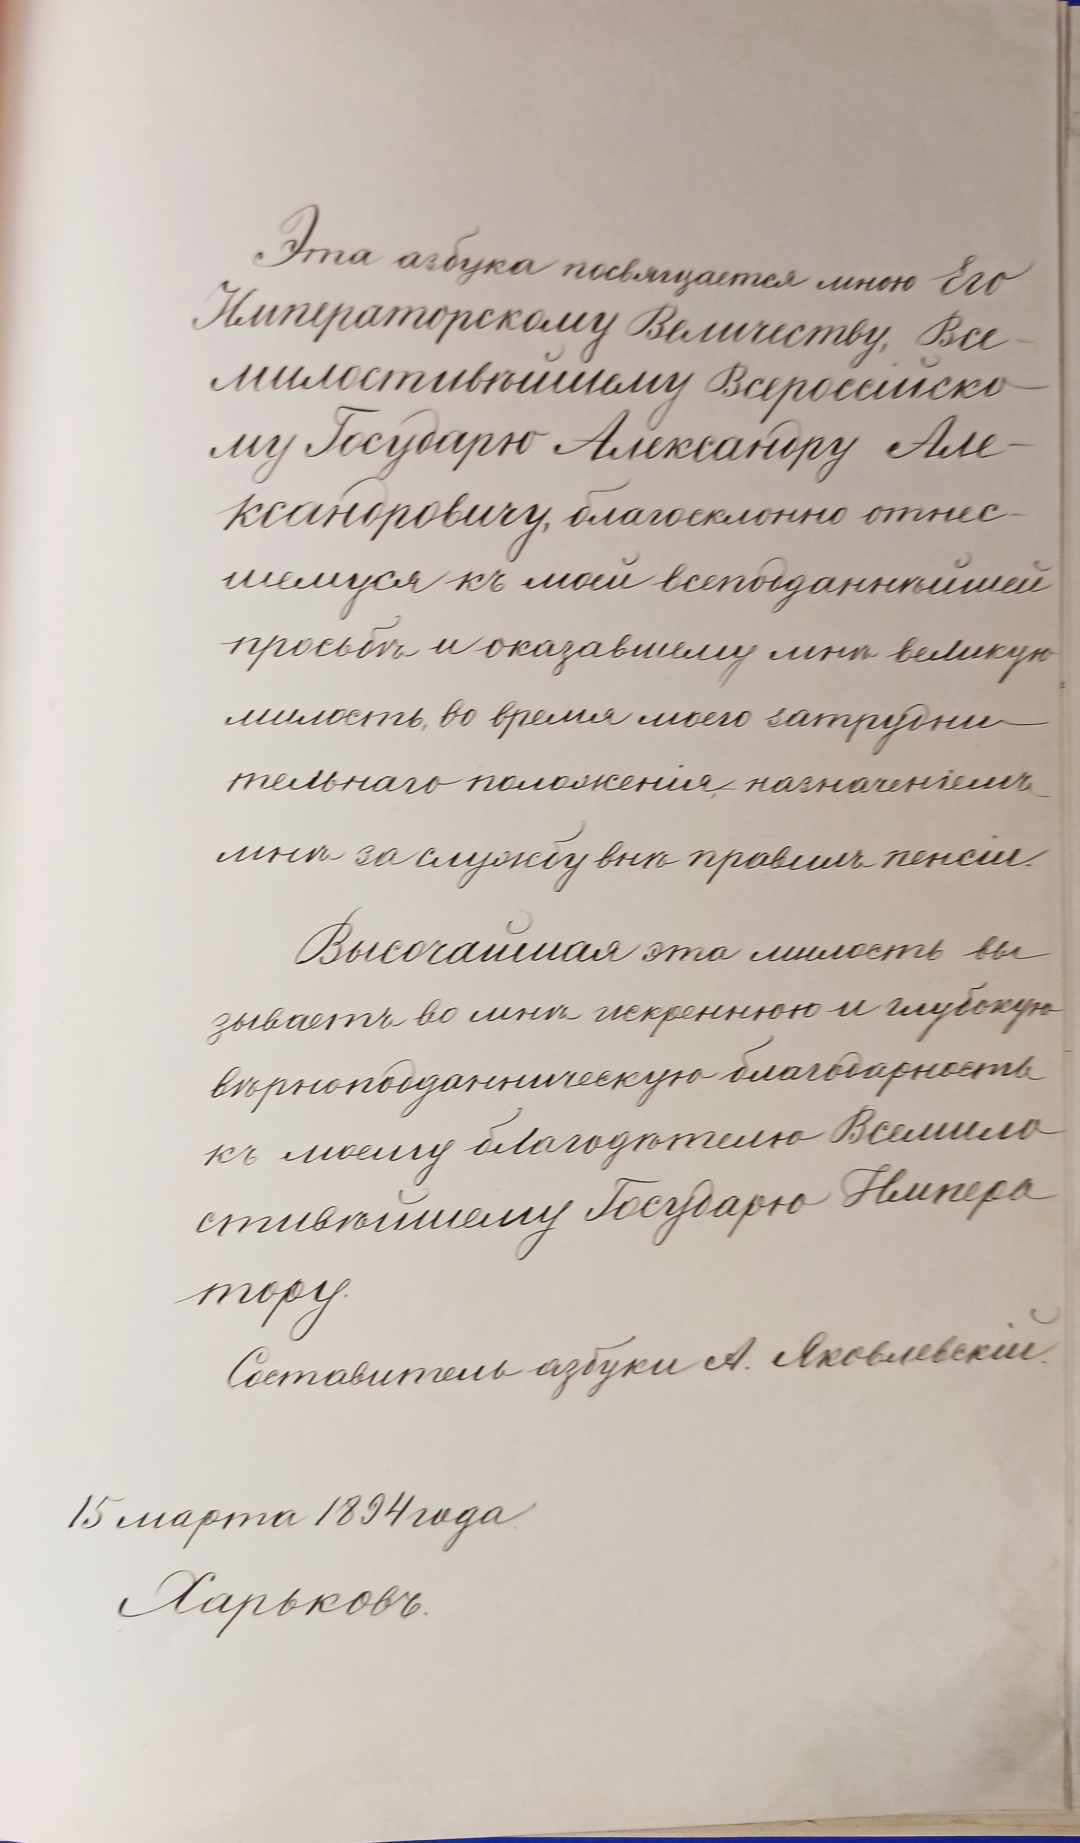 Эта азбука посвящается мною Его
Императорскому Величеству, Все-
милостивѣйшему Всероссійско-
му Государю Александру Але-
ксандровичу, благосклонно отнес-
шемуся къ моей всеподданнѣйшей
просьбѣ и оказавшему мнѣ великую
милость, во время моего затрудни-
тельнаго положенія, назначеніемъ
мнѣ за службу внѣ правилъ пенсіи.
Высочайшая эта милость вы
зываетъ во мнѣ искреннюю и глубокую
вѣрноподданническую благодарность
къ моему благодѣтелю Всемило
стивѣйшему Государю Импера
тору.
Составитель азбуки А. Яковлевскій.
15 марта 1894 года.
Харьковъ.